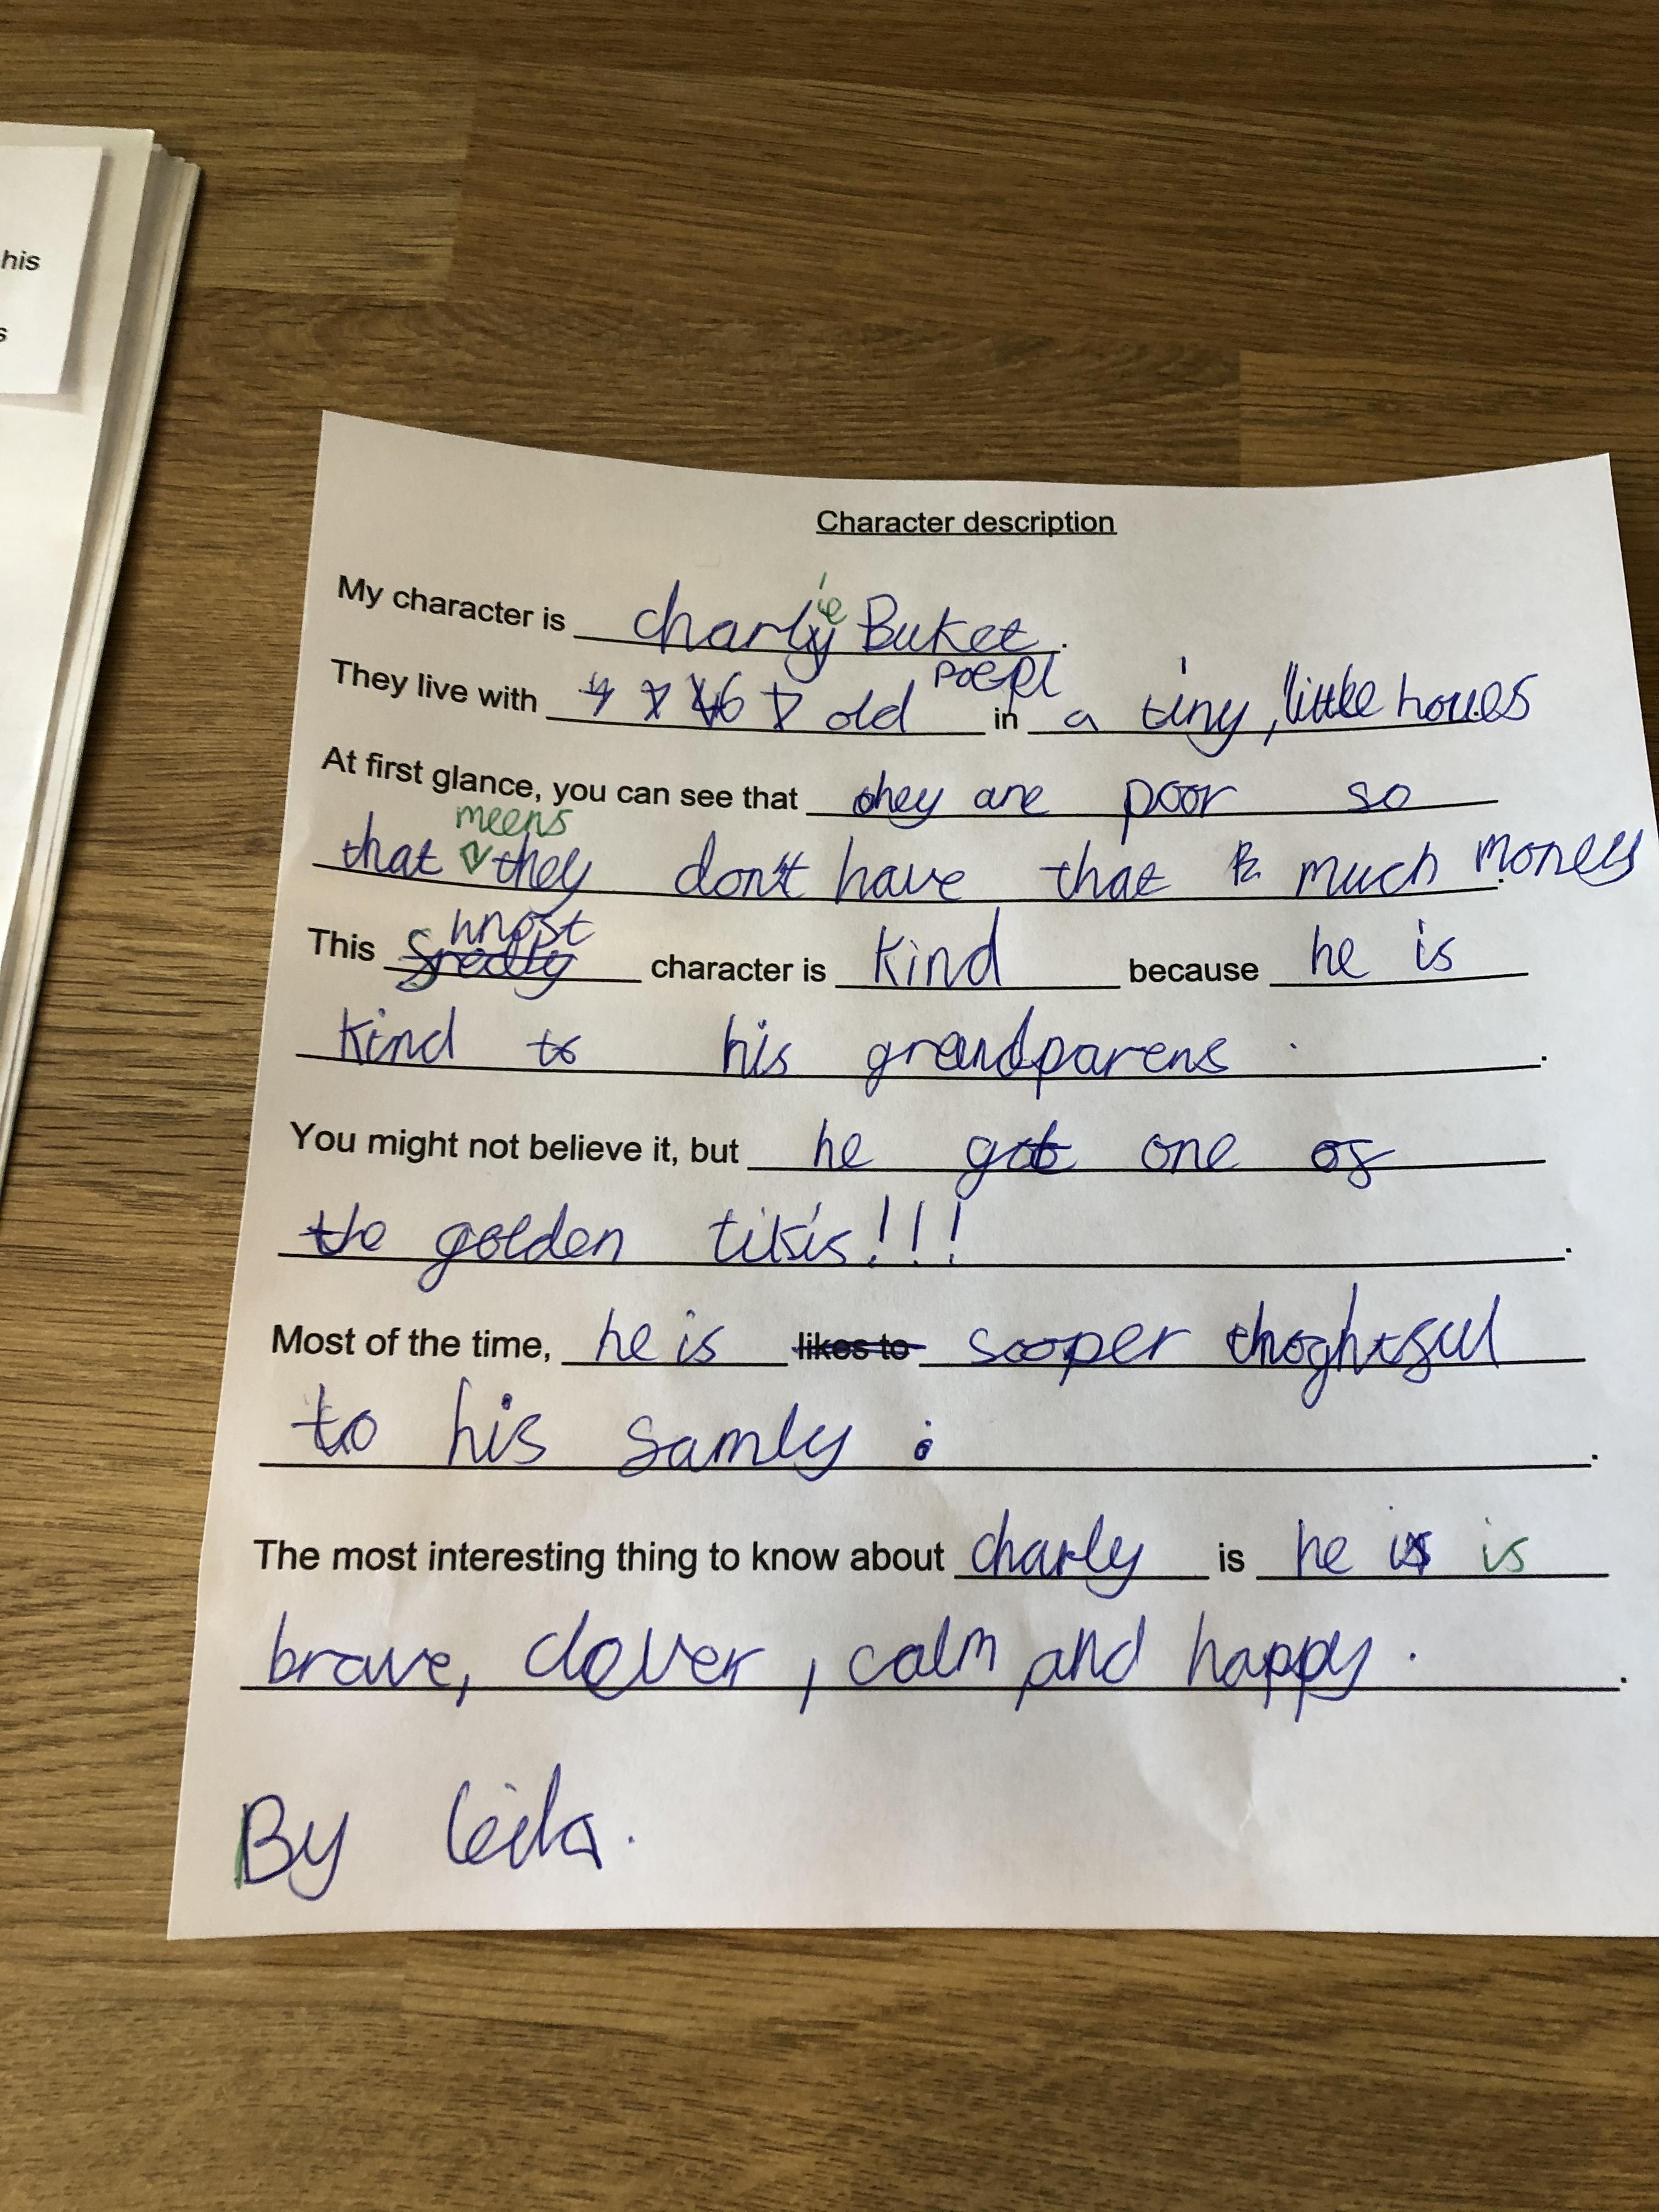 his
s
Character description
My character is charlie Buket.
They live with 6 old poepl in a tiny, little houes
At first glance, you can see that they are poor so
that meens they don't have that much money.
This hnost character is kind because he is
kind to his grandparens.
You might not believe it, but he got one of
the golden tikis!!!.
Most of the time, he is likes to sooper thoghtful
to his famly.
The most interesting thing to know about charly is he is
brave, clever, calm and happy.
By leila.